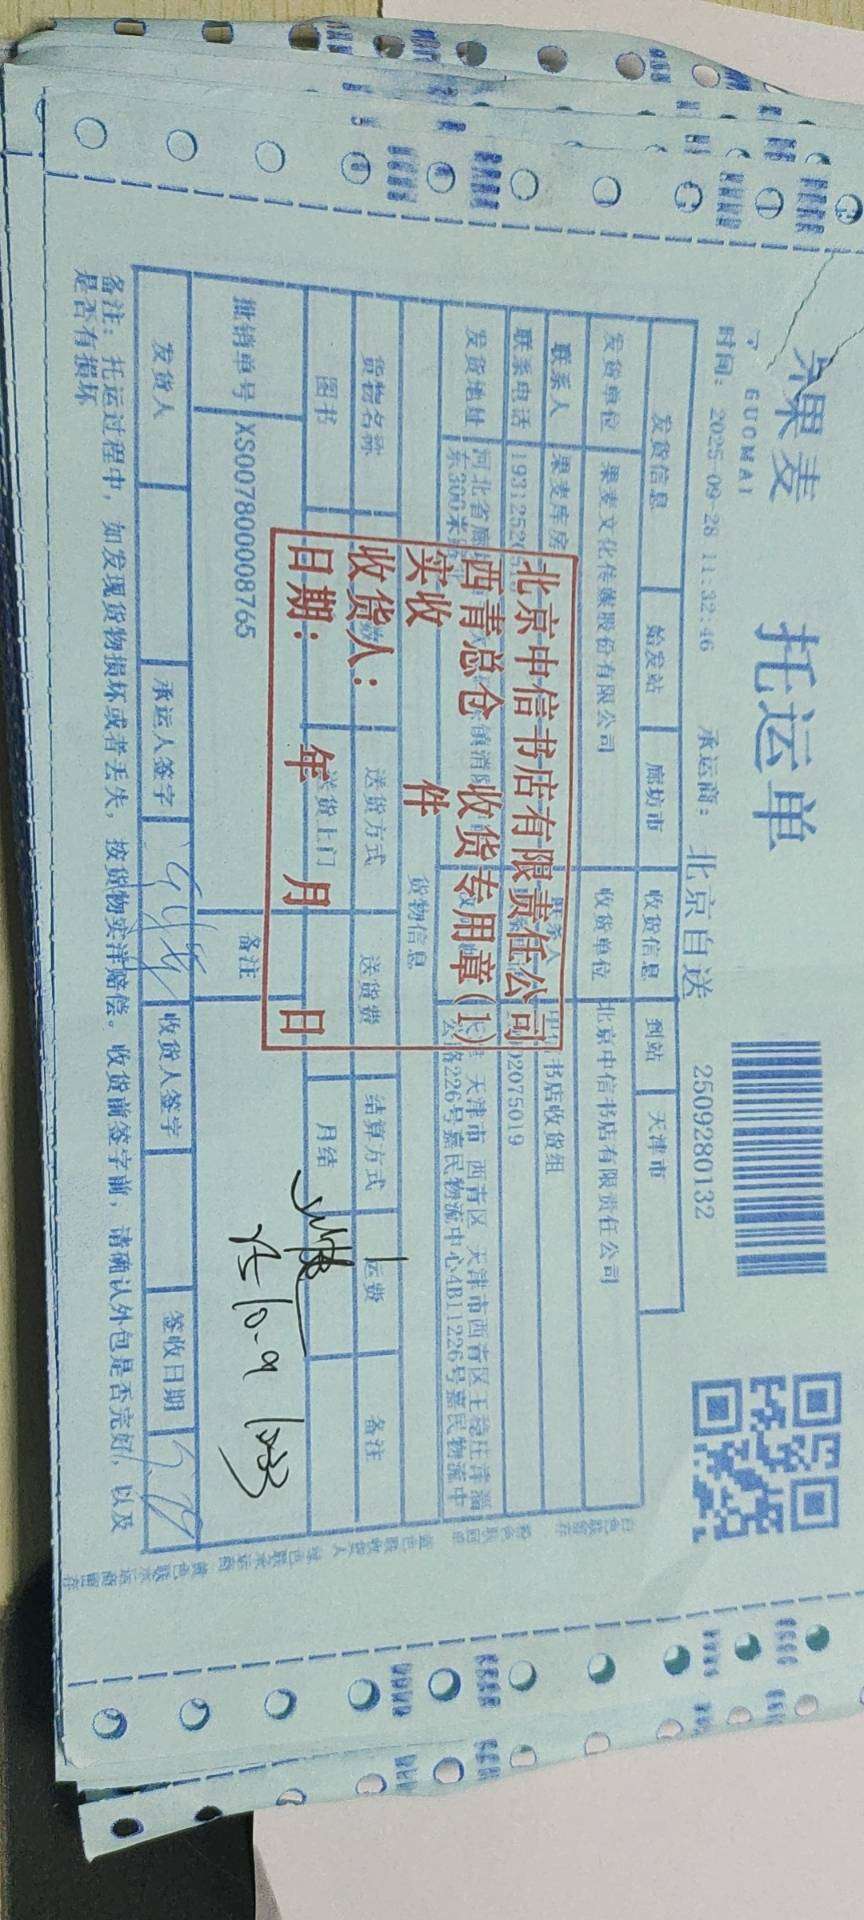 果麦
GUOMAI
托运单
时间: 2025-09-28 11:32:46 承运商: 北京自送 2509280132
发货信息 始发站 廊坊市 收货信息 到站 天津市
发货单位 果麦文化传媒股份有限公司 收货单位 北京中信书店有限责任公司
联系人 果麦库房 书店收货组
联系电话 1931252 02075019
发货地址 河北省廊 天津市 西青区 天津市西青区王稳庄津淄
东300米 公路226号嘉民物流中心4B11226号嘉民物流中
货物信息
货物名称 送货方式 送货费 结算方式 运费 备注
图书 送货上门 月结
批销单号 XS007800008765 备注
发货人 承运人签字 收货人签字 签收日期
备注: 托运过程中, 如发现货物损坏或者丢失, 按货物实洋赔偿。收货前签字前, 请确认外包是否完好, 以及
是否有损坏
北京中信书店有限责任公司
西青总仓 收货专用章(1)
实收 件
收货人:
日期: 年 月 日
10.9
白色联留存 粉色联回单 蓝色联收货人 绿色联承运商 黄色联承运商留存